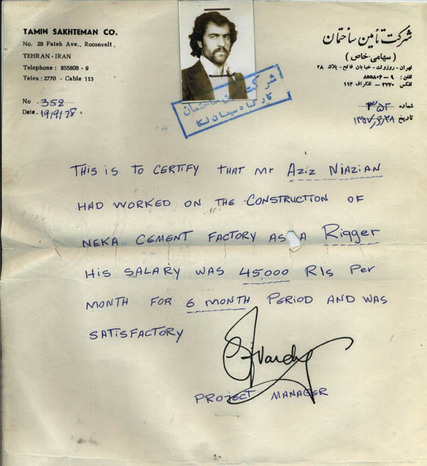 TAMIN SAKHTEMAN CO.
No. 28 Fateh Ave., Roosevelt,
TEHRAN - IRAN
Telephone : 855808 - 9
Telex : 2770 - Cable 113
No. 352
Date : 19/9/78
شرکت تأمین ساختمان
(سهامی خاص)
تهران - روزولت - خیابان فاتح - پلاک ۲۸
تلفن : ۹ - ۸۵۵۸۰۸
تلکس ۲۷۷۰ - تلگراف ۱۱۳
شماره ۳۵۲
تاریخ
شرکت تأمین ساختمان
کارگاه سیمان نکا
THIS IS TO CERTIFY THAT Mr AZIZ NIAZIAN
HAD WORKED ON THE CONSTRUCTION OF
NEKA CEMENT FACTORY AS A Rigger
HIS SALARY WAS 45,000 Rls Per
MONTH FOR 6 MONTH PERIOD AND WAS
SATISFACTORY
PROJECT MANAGER